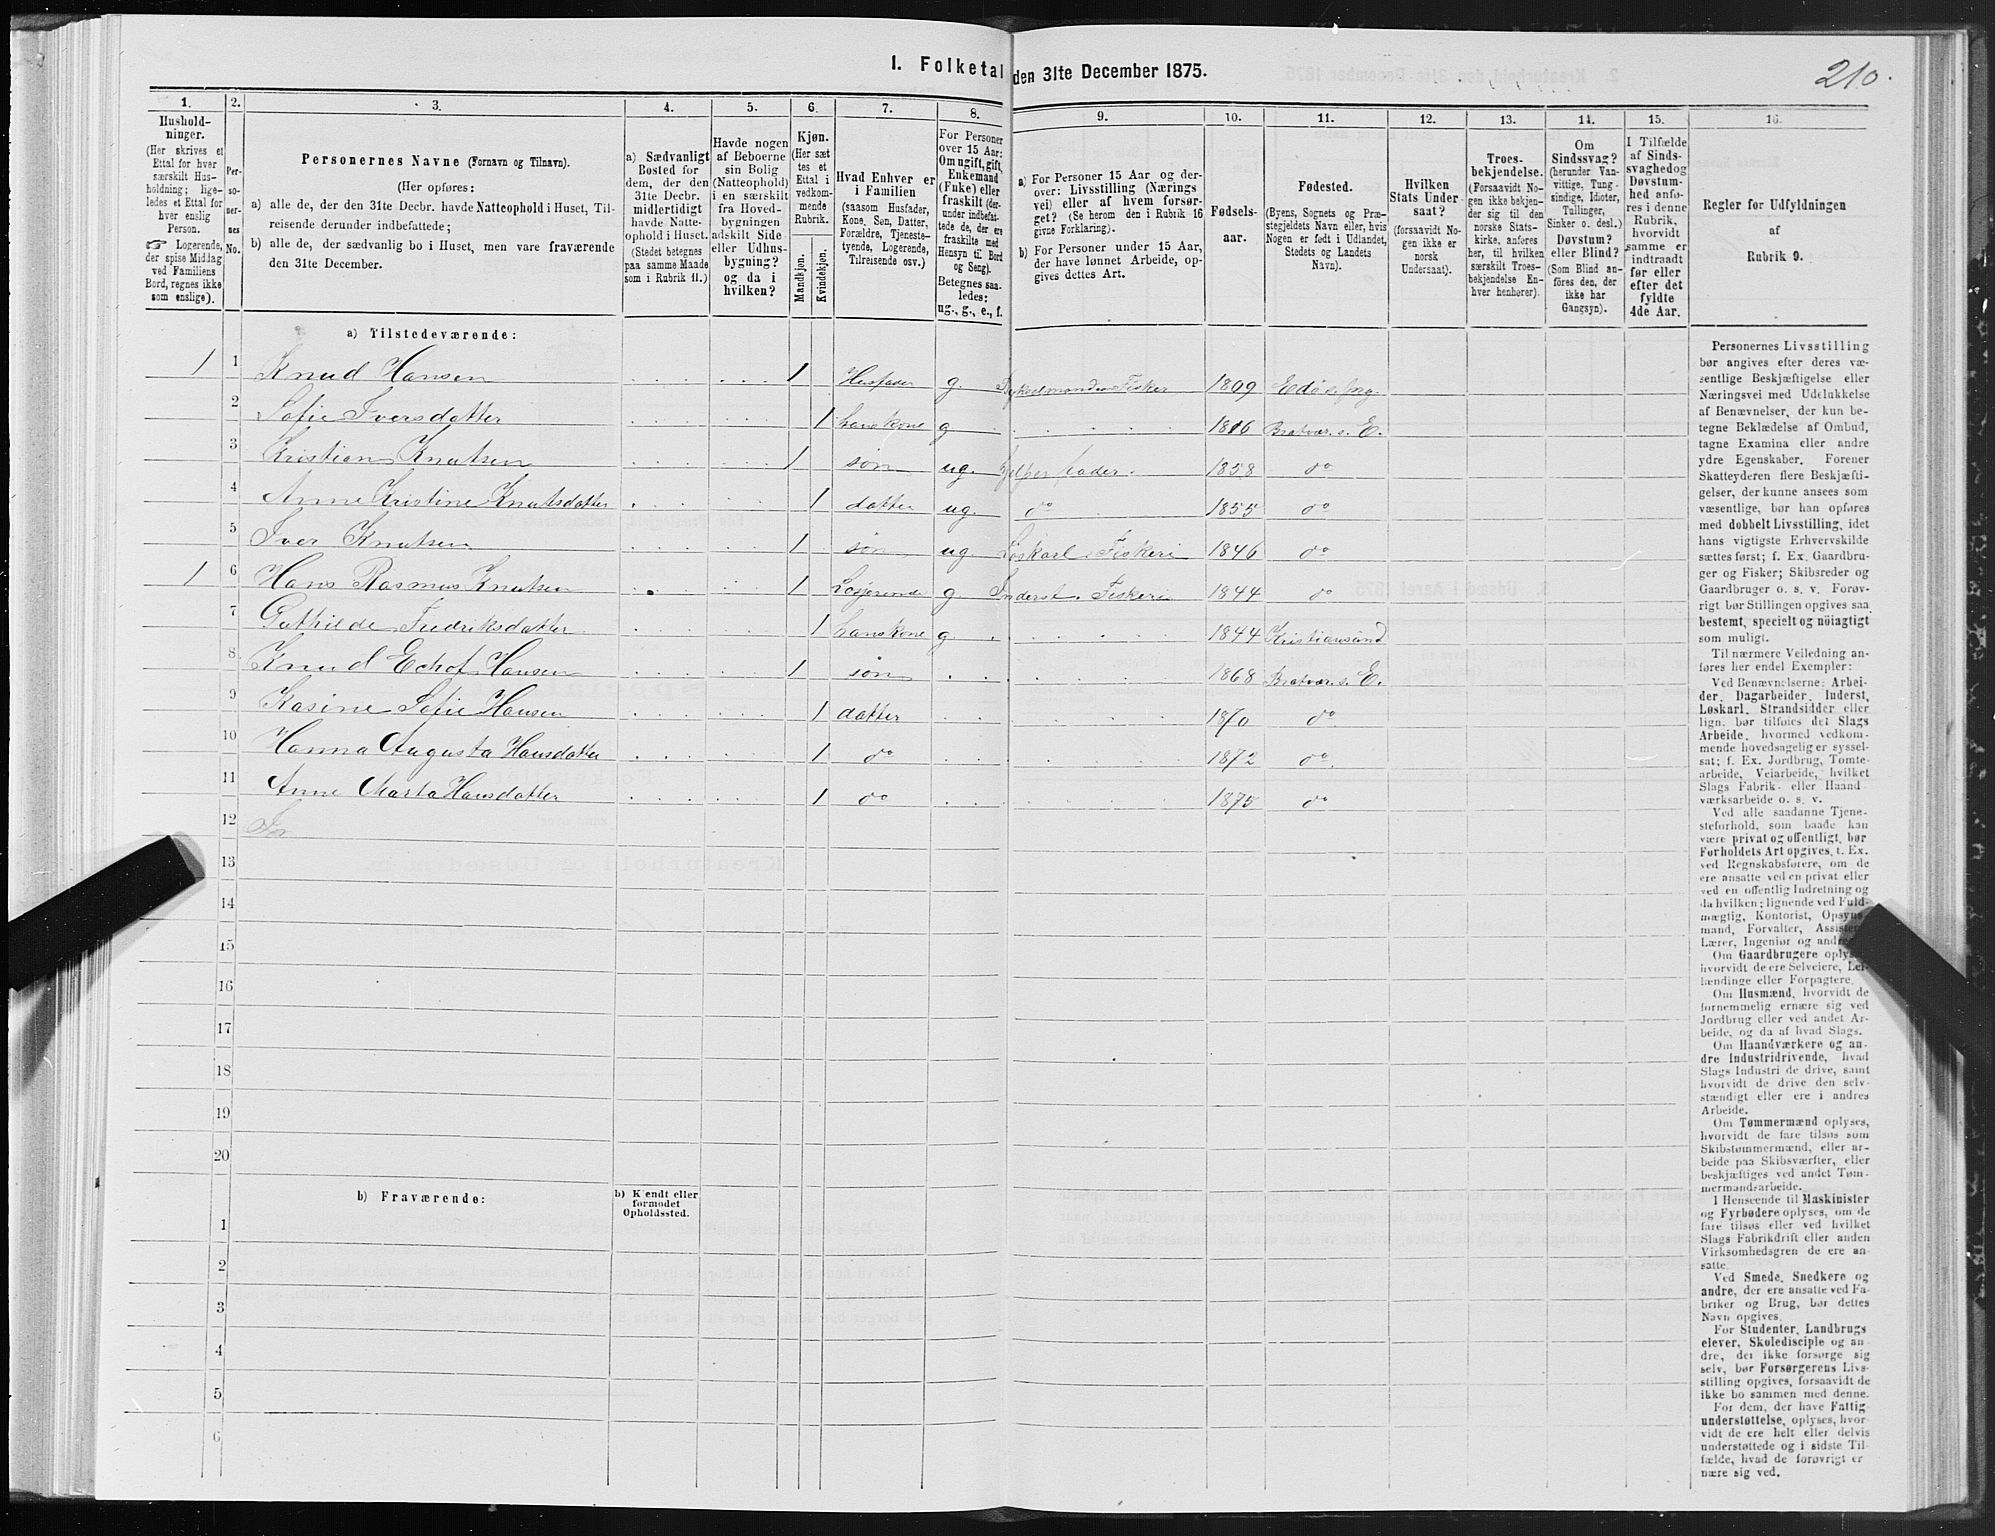 210.
I. Folketal den 31te December 1875.
1. 2. 3. 4. 5. 6. 7. 8. 9. 10. 11. 12. 13. 14. 15. 16.
Hushold-
ninger.
(Her skrives et
Ettal for hver
særskilt Hus-
holdning; lige-
ledes et Ettal for
hver enslig
Person.
☞ Logerende,
der spise Middag
ved Familiens
Bord, regnes ikke
som enslige).
Per-
so-
ner-
nes
No.
Personernes Navne (Fornavn og Tilnavn).
(Her opføres:
a) alle de, der den 31te Decbr. havde Natteophold i Huset, Til-
reisende derunder indbefattede;
b) alle de, der sædvanlig bo i Huset, men vare fraværende
den 31te December.
a) Sædvanligt
Bosted for
dem, der den
31te Decbr.
midlertidigt
havde Natte-
ophold i Huset.
(Stedet betegnes
paa samme Maade
som i Rubrik 11.)
Havde nogen
af Beboerne
sin Bolig
(Natteophold)
i en særskilt
fra Hoved-
bygningen
adskilt Side-
eller Udhus-
bygning?
og da i
hvilken?
Kjøn.
(Her sæt-
tes et
Ettal i
vedkom-
mende
Rubrik.
Mandkjøn.
Kvindekjøn.
Hvad Enhver er
i Familien
(saasom Husfader,
Kone, Søn, Datter,
Forældre, Tjeneste-
tyende, Logerende,
Tilreisende osv.)
For Personer
over 15 Aar:
Om ugift, gift,
Enkemand
(Enke) eller
fraskilt (der-
under indbefat-
tede de, der ere
fraskilte med
Hensyn til Bord
og Seng).
Betegnes saa-
ledes:
ug., g., e., f.
a) For Personer 15 Aar og der-
over: Livsstilling (Nærings-
vei) eller af hvem forsør-
get? (Se herom den i Rubrik 16
givne Forklaring).
b) For Personer under 15 Aar,
der have lønnet Arbeide, op-
gives dettes Art.
Fødsels-
aar.
Fødested.
(Byens, Sognets og Præ-
stegjeldets Navn eller, hvis
Nogen er født i Udlandet,
Stedets og Landets
Navn).
Hvilken
Stats Under-
saat?
(forsaavidt No-
gen ikke er
norsk
Undersaat).
Troes-
bekjendelse.
(Forsaavidt No-
gen ikke bekjen-
der sig til den
norske Stats-
kirke, anføres
her, til hvilken
særskilt Troes-
bekjendelse En-
hver henhører).
Om
Sindssvag?
(herunder Van-
vittige, Tung-
sindige, Idioter,
Tullinger,
Sinker o. desl.)
Døvstum?
eller Blind?
(Som Blind an-
føres den, der
ikke har
Gangsyn).
I Tilfælde
af Sinds-
svaghed og
Døvstum-
hed anfø-
res i denne
Rubrik,
hvorvidt
samme er
indtraadt
før eller
efter det
fyldte
4de Aar.
Regler for Udfyldningen
af
Rubrik 9.
a) Tilstedeværende:
1 1 Knud Hansen 1 Husfader g. Fisker 1809 Edø
2 Sofie Iversdatter 1 hans kone g 1816 Bratvær s. E.
3 Kristian Knutsen 1 søn ug. hjelper fader. 1858 do
4 Anne Kristine Knutsdatter 1 datter ug. do 1855 do
5 Iver Knutsen 1 søn ug Løskarl Fiskeri 1846 do
1 6 Hans Rasmus Knutsen 1 Losjerende g Inderst. Fiskeri 1844 do
7 Fredriksdatter 1 hans kone g. 1844 Kristiansund
8 Knud Hansen 1 søn 1868 Bratvær s. E.
9 Kasine Sofie Hansen 1 datter 1870 do
10 Hanna Augusta Hansdatter 1 do 1872 do
11 Anne Marta Hansdatter 1 do 1875 do
12
13
14
15
16
17
18
19
20
b) Fraværende:
b) Kjendt eller
formodet
Opholdssted.
1
2
3
4
5
6
Personernes Livsstilling
bør angives efter deres væ-
sentlige Beskjæftigelse eller
Næringsvei med Udelukkelse
af Benævnelser, der kun be-
tegne Beklædelse af Ombud,
tagne Examina eller andre
ydre Egenskaber. Forener
Skatteyderen flere Beskjæfti-
gelser, der kunne ansees som
væsentlige, bør han opføres
med dobbelt Livsstilling, idet
hans vigtigste Erhvervskilde
sættes først; f. Ex. Gaardbru-
ger og Fisker; Skibsreder og
Gaardbruger o. s. v. Forøv-
rigt bør Stillingen opgives saa
bestemt, specielt og nöiagtigt
som muligt.
Til nærmere Veiledning an-
føres her endel Exempler:
Ved Benævnelserne: Arbei-
der, Dagarbeider, Inderst,
Løskarl, Strandsidder eller
lign. bør tilføies det Slags
Arbeide, hvormed vedkom-
mende hovedsagelig er syssel-
sat; f. Ex. Jordbrug, Tomte-
arbeide, Veiarbeide, hvilket
Slags Fabrik- eller Haand-
værksarbeide o. s. v.
Ved alle saadanne Tjene-
steforhold, som baade kan
være privat og offentligt, bør
Forholdets Art opgives, t. Ex.
ved Regnskabsførere, om de
ere ansatte ved en privat eller
ved en offentlig Indretning og
da hvilken; lignende ved Fuld-
mægtig, Kontorist, Opsyns-
mand, Forvalter, Assistent,
Lærer, Ingeniør og andre.
Om Gaardbrugere oplyses,
hvorvidt de ere Selveiere, Lei-
lændinge eller Forpagtere.
Om Husmænd, hvorvidt de
fornemmelig ernære sig ved
Jordbrug eller ved andet Ar-
beide, og da af hvad Slags.
Om Haandværkere og an-
dre Industridrivende, hvad
Slags Industri de drive, samt
hvorvidt de drive den selv-
stændigt eller ere i andres
Arbeide.
Om Tømmermænd oplyses,
hvorvidt de fare tilsøs som
Skibstømmermænd, eller ar-
beide paa Skibsværfter, eller
beskjæftiges ved andet Tøm-
mermandsarbeide.
I Henseende til Maskinister
og Fyrbødere oplyses, om de
fare tilsøs eller ved hvilket
Slags Fabrikdrift eller anden
Virksomhedsgren de ere an-
satte.
Ved Smede, Snedkere og
andre, der ere ansatte ved Fa-
briker og Brug, bør dettes
Navn opgives.
For Studenter, Landbrugs-
elever, Skoledisciple og an-
dre, der ikke forsørge sig
selv, bør Forsørgerens Livs-
stilling opgives, forsaavidt de
ikke bo sammen med denne.
For dem, der have Fattig-
understøttelse, oplyses, hvor-
vidt de ere helt eller delvis
understøttede og i sidste Til-
fælde, hvad de forøvrigt er-
nære sig ved.